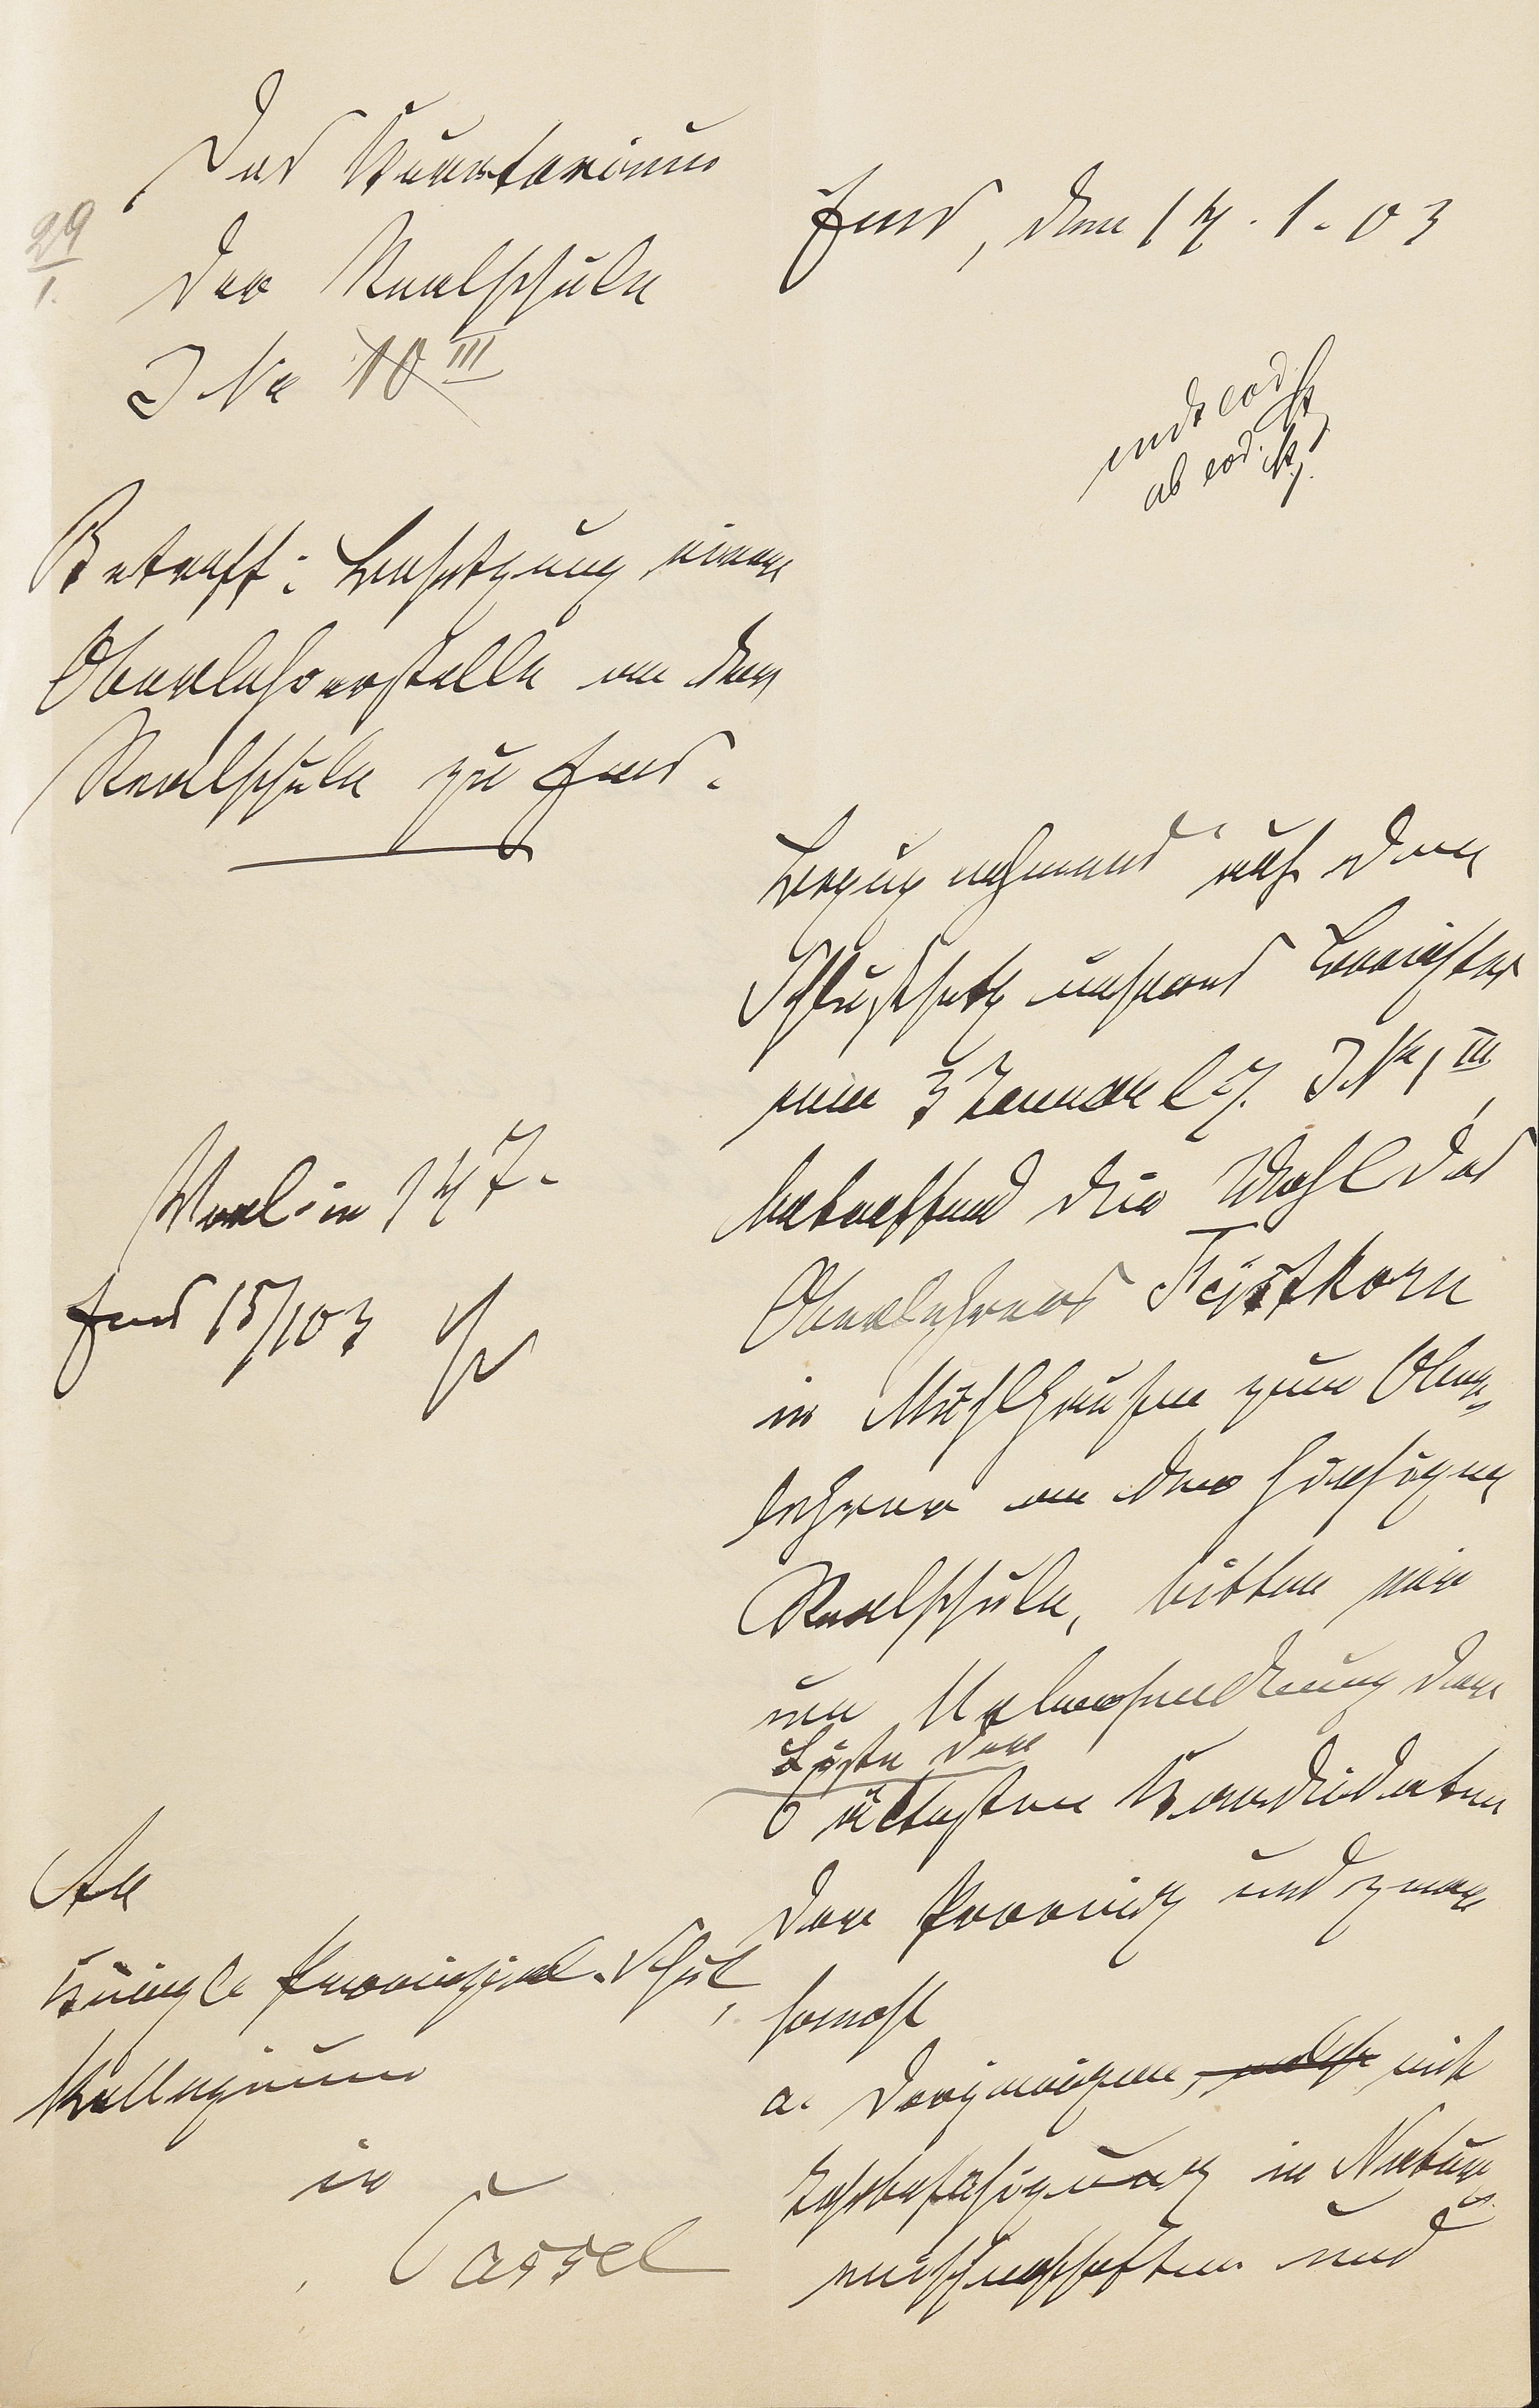 Das Kuratorium
der Realschule
J Nr 10 III
29
1.
Ems, den 14. 1. 03
mdt eod.
ab eod.
Betreff: Besetzung einer
Oberlehrerstelle an der
Realschule zu Ems.
Bezugnehmend auf den
Schlußsatz unseres Berichtes
vom 3 Januar l. J. J. Nr 1 III,
betreffend die Wahl des
Oberlehrers Feistkorn
in Mühlhausen zum Ober-
lehrer an der hiesigen
Realschule, bitten wir
um Übersendung der
Liste der
6 ältesten Kandidaten
der Provinz und zwar
sowohl
a. derjenigen, welche mit
Lehrbefähigung in Natur-
wissenschaften und
in 14 T.
Ems 15/1 03
An
Königle Provinzial-Schul-
Kollegium
in
Cassel